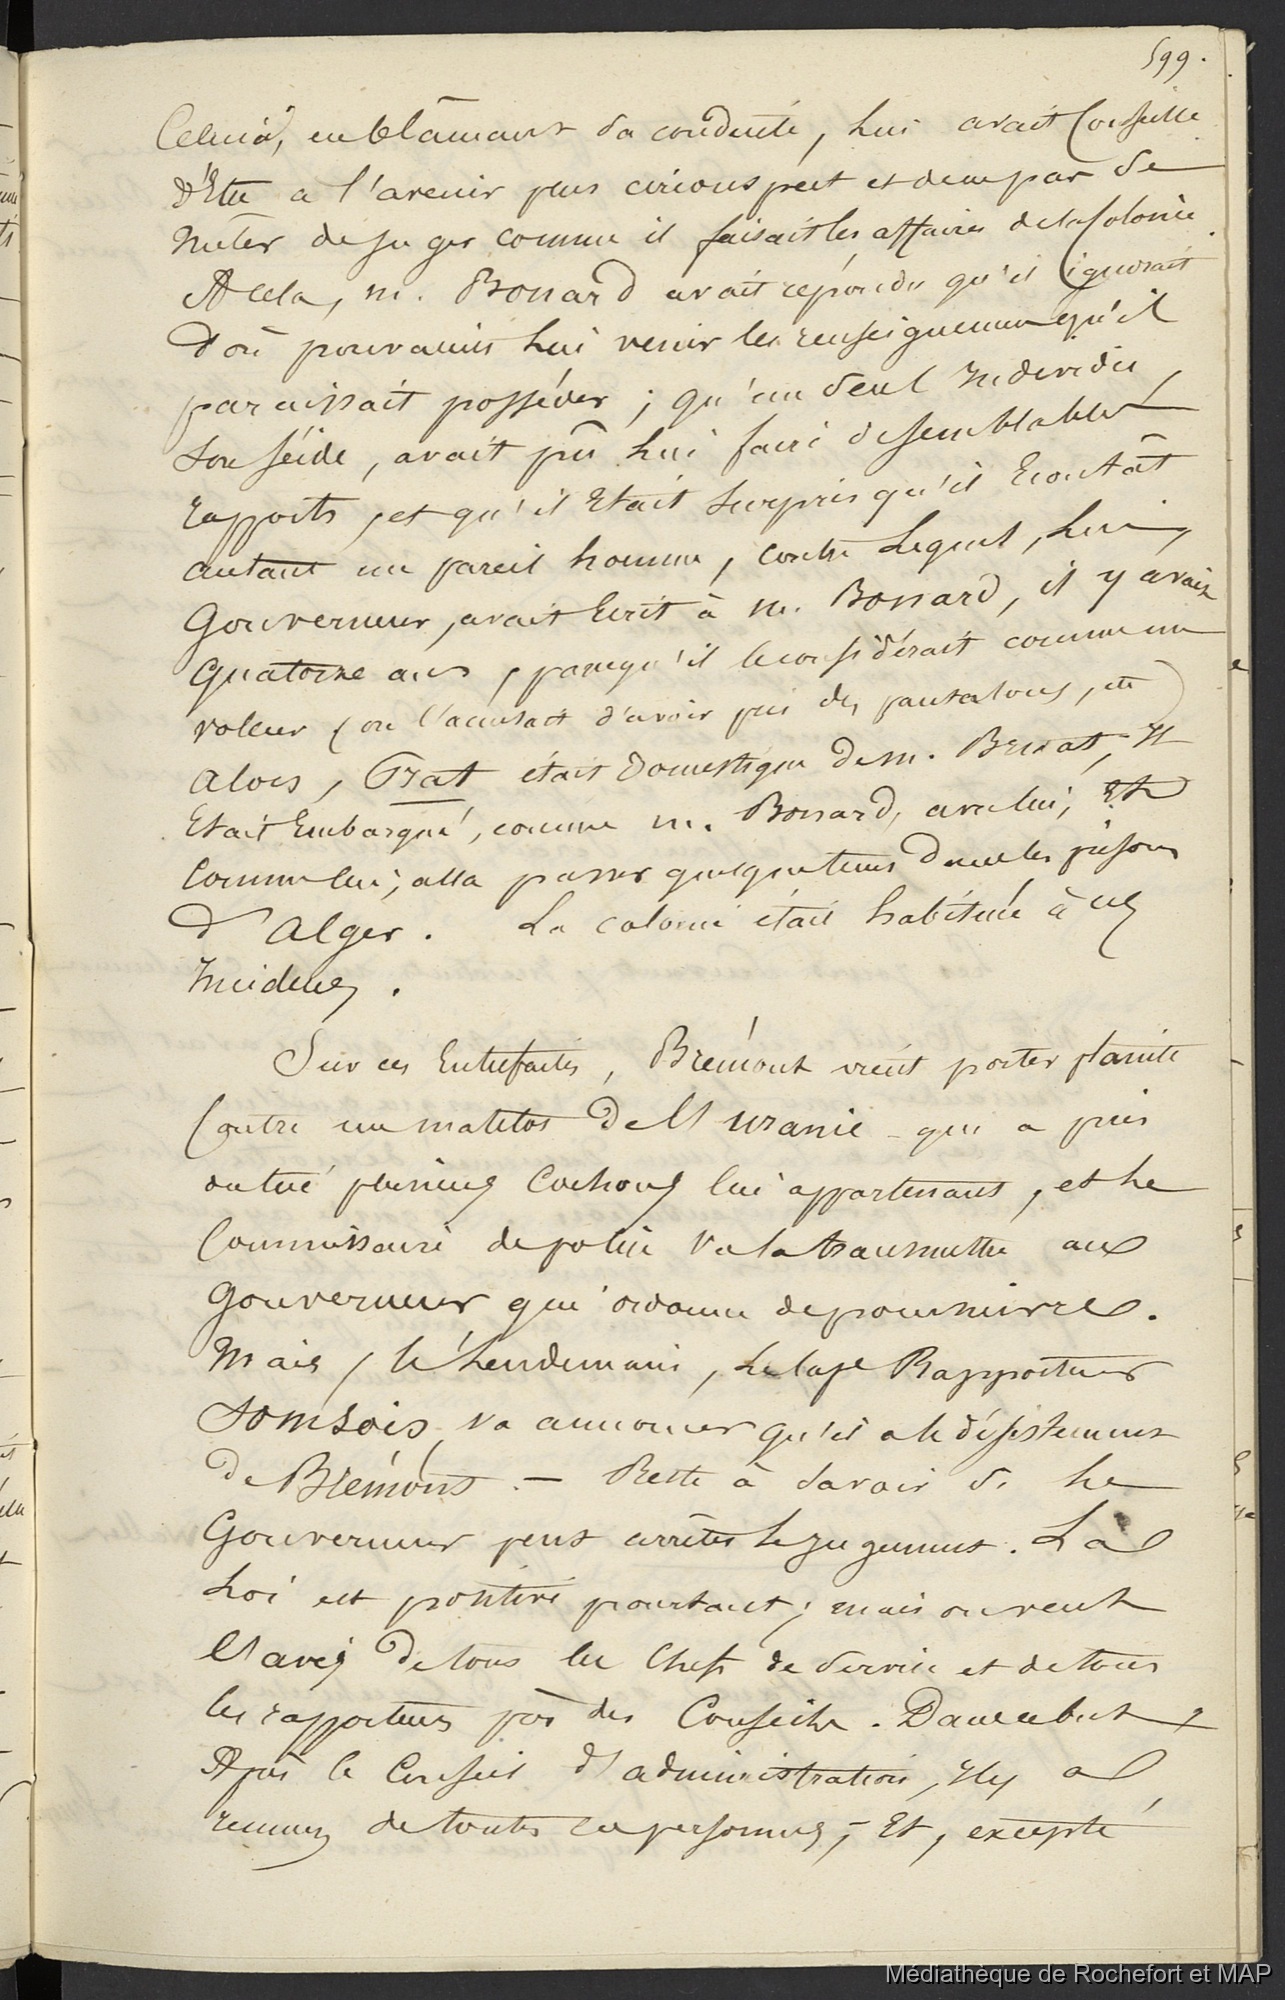 599.
Celuici, en blâmant sa conduite, lui avait Conseillé
d'Etre a l'avenir plus circonspect et de ne pas se
mêler de juger comme il faisait les affaires de la Colonie.
A cela, m. Bonnard avait répondu qu'il ignorait
d'où pouvaient lui venir les renseignemens qu'il
paraissait posséder ; qu'un seul Individu,
son séide, avait pû lui faire de semblables
rapports, et qu'il Etait surpris qu'il Ecoutât
autant un pareil homme, contre lequel, lui,
Gouverneur, avait Ecrit à m. Bonnard, il y avait
quatorze ans, parcequ'il le considérait comme un
voleur (on l'accusait d'avoir pris des pantalons, etc)
alors, Prat était Domestique de m. Bruat, Il
Etait Embarqué, comme m. Bonnard, avec lui, Et
comme lui, alla passer quelque tems dans les prisons
d'Alger. La colonie était habituée à ces
Incidens.
Sur ces Entrefaites, Brémont vient porter plainte
Contre un matelot de l'Uranie qui a pris
ou tué plusieurs Cochons lui appartenant, et le
Commissaire de police va la transmettre au
Gouverneur qui ordonne de poursuivre.
Mais, le lendemain, le Rapporteur
Somsois va annoncer qu'il a le désistement
de Brémont. — Reste à savoir si le
Gouverneur peut arrêter le jugement. La
Loi est positive pourtant ; mais on veut
l'avis de tous les Chefs de service et de tous
les rapporteurs près des Conseils. Dans ce but,
Après le Conseil d'administration, Il y a
réunion de toutes ces personnes, — Et, excepté
Médiathèque de Rochefort et MAP